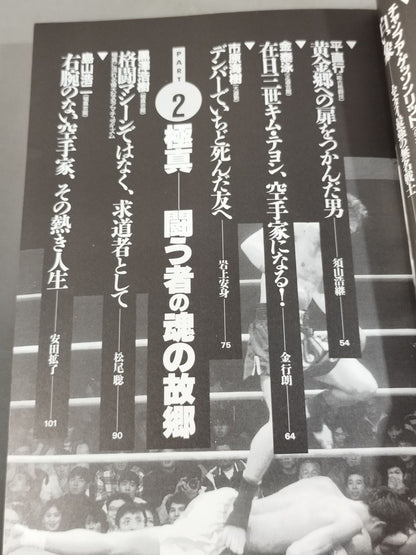 黄金郷への扉をつかんだ男
須山浩継
54
在日三世キム・テヨン、空手家になる!
金行朗
64
デンバーでいちど死んだ友へ
岩上安身
75
PART
2
極真──闘う者の魂の故郷
格闘マシーンではなく、求道者として
松尾聡
90
右腕のない空手家、その熱き人生
安田拡了
101